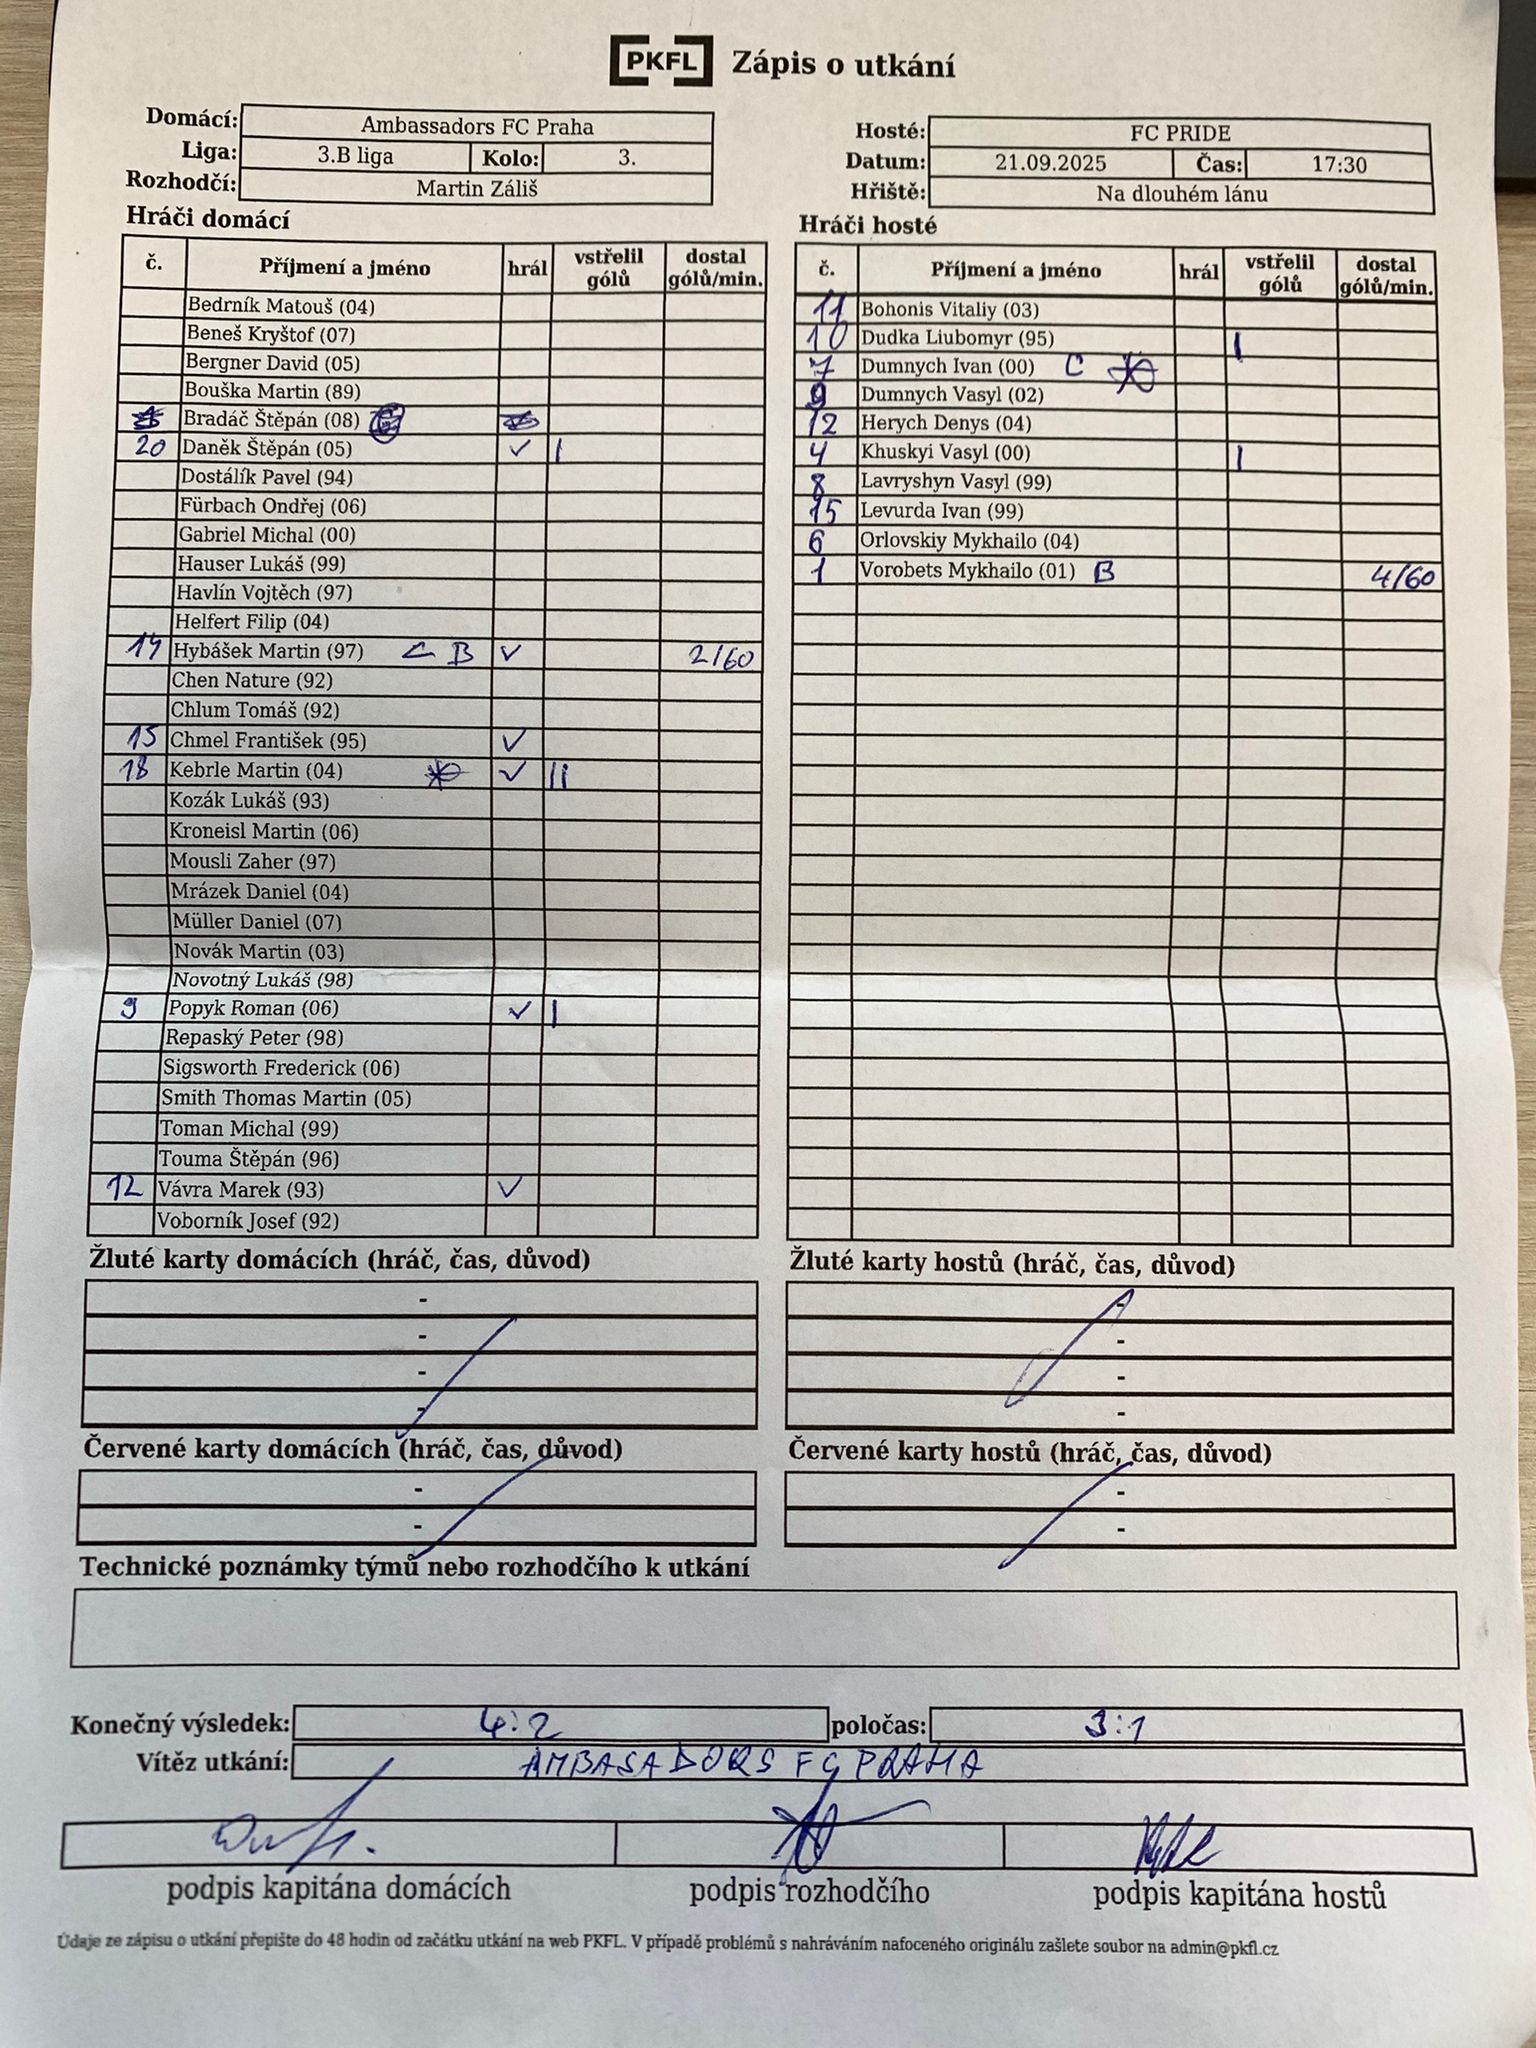 PKFL Zápis o utkání
Domácí: Ambassadors FC Praha
Liga: 3.B liga Kolo: 3.
Rozhodčí: Martin Záliš
Hosté: FC PRIDE
Datum: 21.09.2025 Čas: 17:30
Hřiště: Na dlouhém lánu
Hráči domácí
č. Příjmení a jméno hrál vstřelil gólů dostal gólů/min.
Bedrník Matouš (04)
Beneš Kryštof (07)
Bergner David (05)
Bouška Martin (89)
Bradáč Štěpán (08)
20 Daněk Štěpán (05) ✓ |
Dostálík Pavel (94)
Fürbach Ondřej (06)
Gabriel Michal (00)
Hauser Lukáš (99)
Havlín Vojtěch (97)
Helfert Filip (04)
14 Hybášek Martin (97) C B ✓ 2/60
Chen Nature (92)
Chlum Tomáš (92)
15 Chmel František (95) ✓
18 Kebrle Martin (04) ✓ ||
Kozák Lukáš (93)
Kroneisl Martin (06)
Mousli Zaher (97)
Mrázek Daniel (04)
Müller Daniel (07)
Novák Martin (03)
Novotný Lukáš (98)
9 Popyk Roman (06) ✓ |
Repaský Peter (98)
Sigsworth Frederick (06)
Smith Thomas Martin (05)
Toman Michal (99)
Touma Štěpán (96)
12 Vávra Marek (93) ✓
Voborník Josef (92)
Hráči hosté
č. Příjmení a jméno hrál vstřelil gólů dostal gólů/min.
11 Bohonis Vitaliy (03)
10 Dudka Liubomyr (95) |
7 Dumnych Ivan (00) C
9 Dumnych Vasyl (02)
12 Herych Denys (04)
4 Khuskyi Vasyl (00) |
8 Lavryshyn Vasyl (99)
15 Levurda Ivan (99)
6 Orlovskiy Mykhailo (04)
1 Vorobets Mykhailo (01) B 4/60
Žluté karty domácích (hráč, čas, důvod)
-
-
-
-
Žluté karty hostů (hráč, čas, důvod)
-
-
-
-
Červené karty domácích (hráč, čas, důvod)
-
-
Červené karty hostů (hráč, čas, důvod)
-
-
Technické poznámky týmů nebo rozhodčího k utkání
Konečný výsledek: 4:2 poločas: 3:1
Vítěz utkání: AMBASADORS FC PRAHA
podpis kapitána domácích podpis rozhodčího podpis kapitána hostů
Údaje ze zápisu o utkání přepište do 48 hodin od začátku utkání na web PKFL. V případě problémů s nahráváním nafoceného originálu zašlete soubor na admin@pkfl.cz